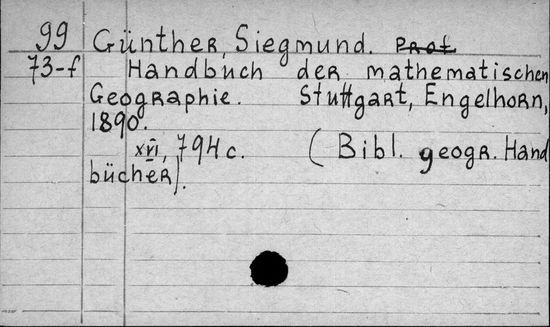 99 Günther, Siegmund. Prof.
73-f Handbuch der mathematischen
Geographie. Stuttgart, Engelhorn,
1890.
XVI, 794 c. (Bibl. geogr. Hand
bücher).